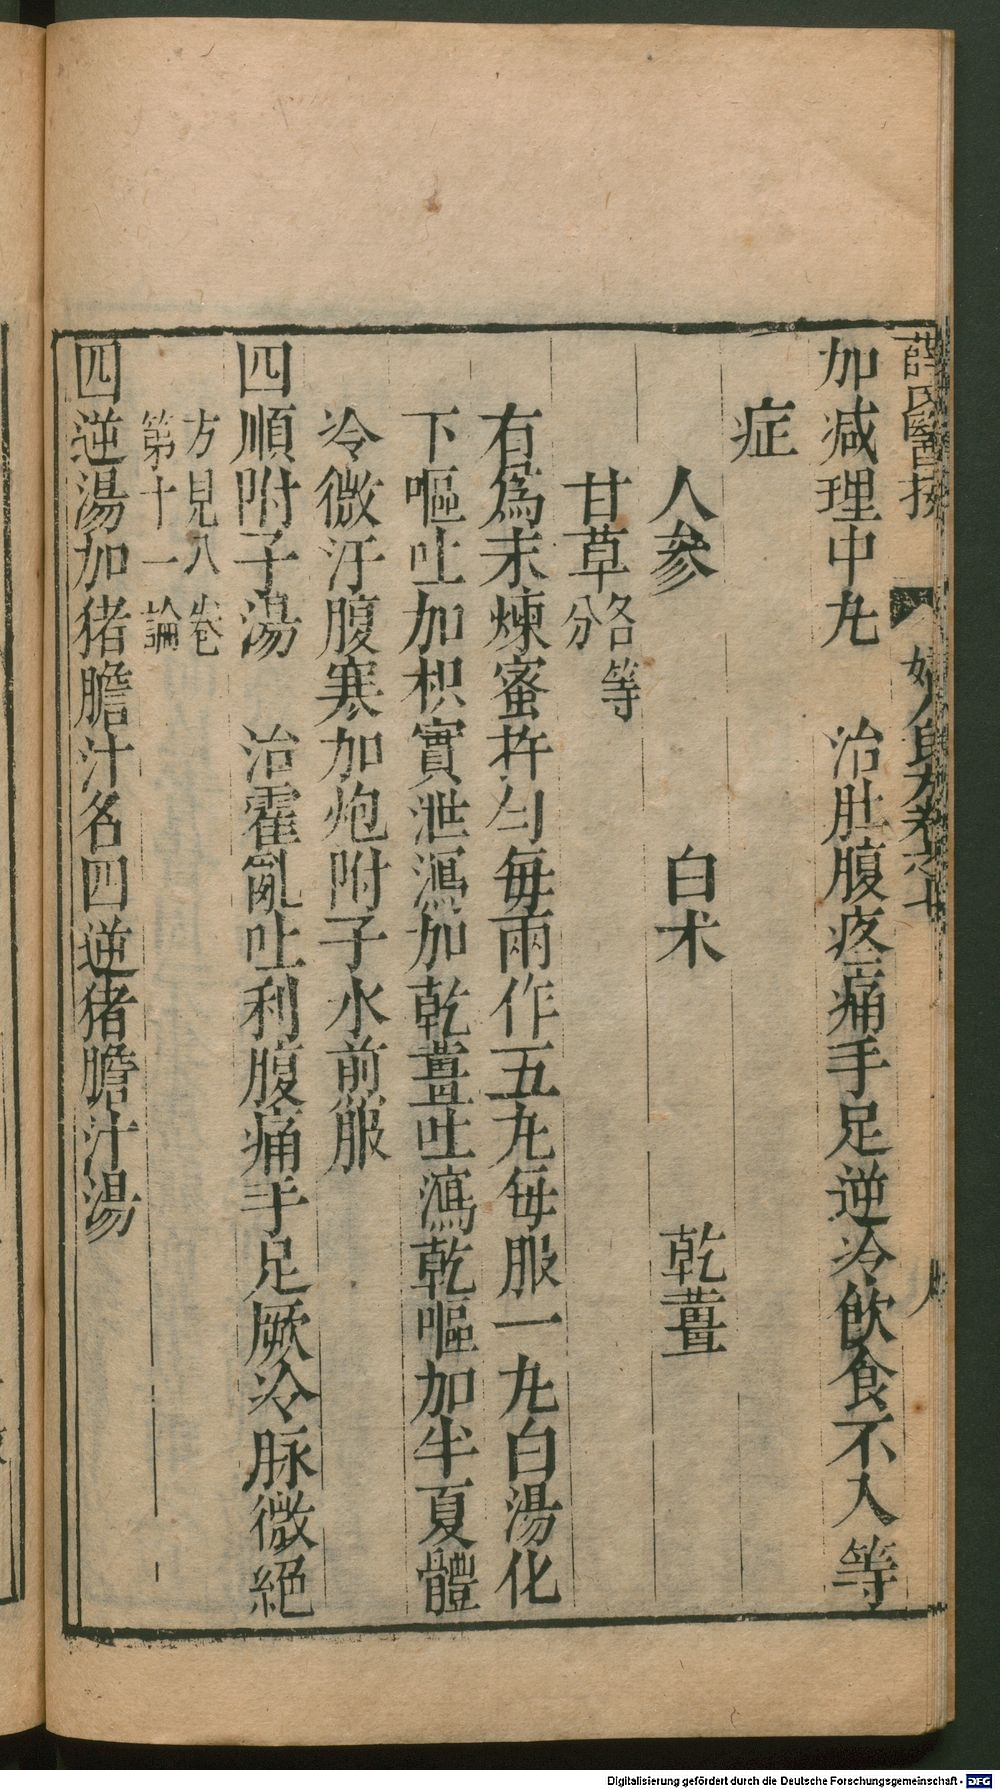 薛氏醫按 婦人良方卷之七
加减理中丸 治肚腹疼痛手足逆冷飲食不入等
症
人參 白术 乾薑
甘草各等分
右為末煉蜜杵匀每兩作五丸每服一丸白湯化
下嘔吐加枳實泄瀉加乾薑吐瀉乾嘔加半夏體
冷微汗腹寒加炮附子水煎服
四順附子湯 治霍亂吐利腹痛手足厥冷脉微絕
方見八卷
第十一論
四逆湯加猪膽汁名四逆猪膽汁湯
Digitalisierung gefördert durch die Deutsche Forschungsgemeinschaft - DFG